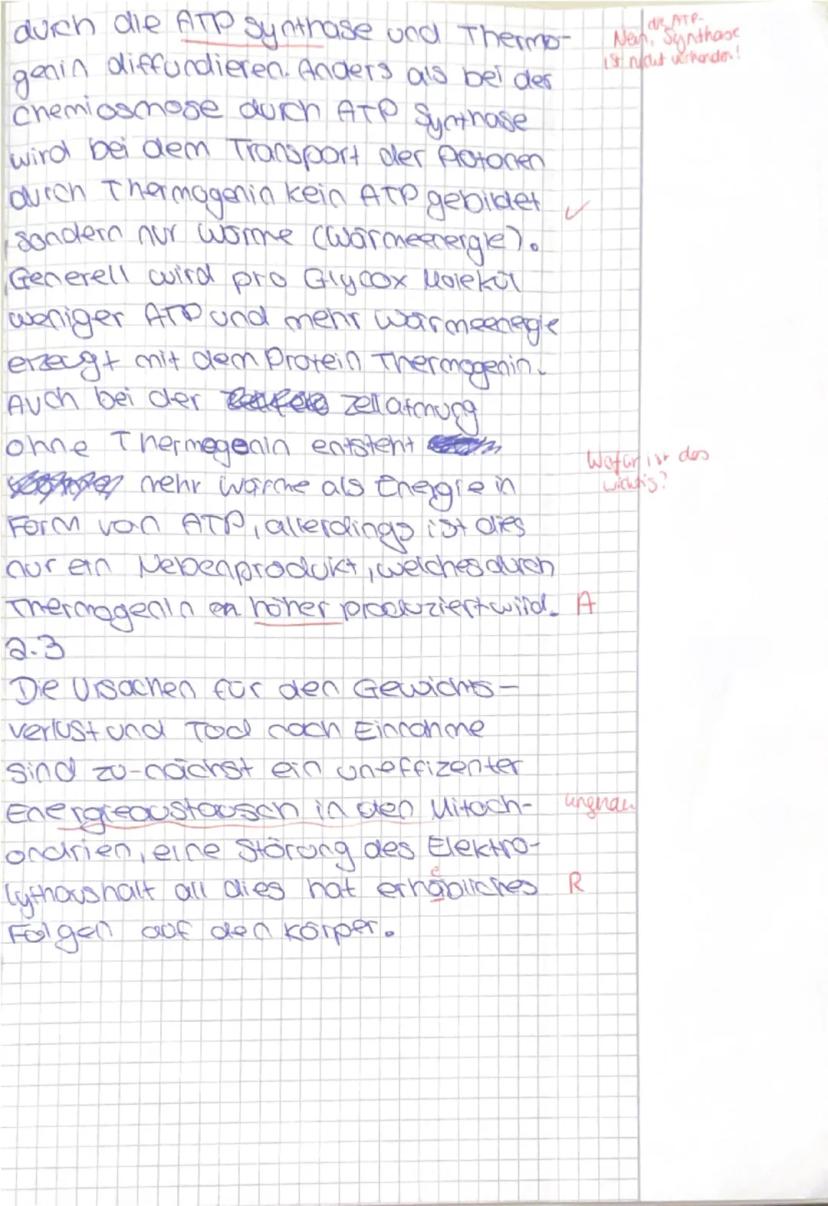 durch die ATP Synthase und Thermo-
genin diffundieren. Anders als bei der
Chemiosmose durch ATP Synthase
wird bei dem Transport der Protonen
durch Thermogenin kein ATP gebildet
sondern nur Wärme (Wärmeenergie).
Generell wird pro Glucose Molekül
weniger ATP und mehr Wärmeenergie
erzeugt mit dem Protein Thermogenin.
Auch bei der Zellatmung
ohne Thermogenin entsteht
mehr Wärme als Energie in
Form von ATP, allerdings ist dies
nur ein Nebenprodukt, welches durch
Thermogenin en höher produziert wird.
2.3
Die Ursachen für den Gewichts-
verlust und Tod nach Einnahme
sind zu-nächst ein uneffizenter
Energieaustausch in den Mitoch-
ondrien, eine Störung des Elektro-
lythaushalt all dies hat erhäbliches
Folgen auf den Körper.
die ATP-
Nein, Synthase
ist nicht vorhanden!
✓
Wofür ist das
wichtig?
A
ungenau
e
R